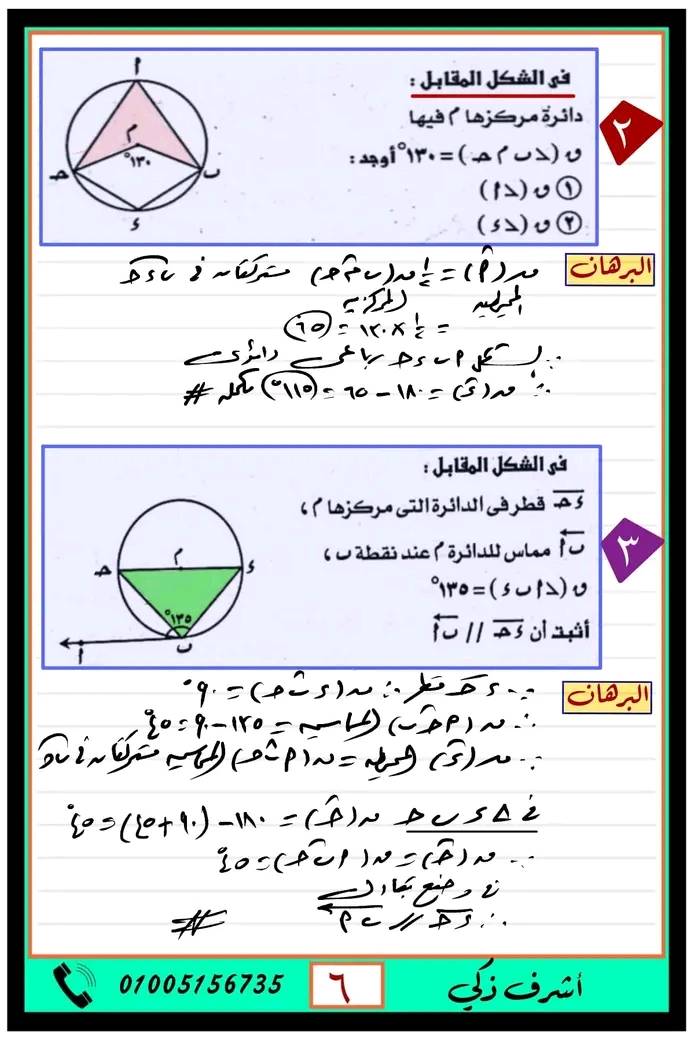 فى الشكل المقابل :
٢
دائرة مركزها م فيها
ق (د ب م حـ) = ١٣٠° أوجد :
① ق (د أ)
② ق (د ء)
أ
م
١٣٠°
حـ
ب
ء
البرهان
ق (أ) = ١/٢ ق (ب م حـ) مشتركتان فى ب ء حـ
المحيطية المركزية
= ١/٢ × ١٣٠ = ٦٥
∴ الشكل أ ب ء حـ رباعى دائرى
∴ ق (ء) = ١٨٠ - ٦٥ = ١١٥° تكملة #
فى الشكل المقابل :
٣
ء حـ قطر فى الدائرة التى مركزها م ،
ب أ مماس للدائرة م عند نقطة ب ،
ق (د أ ب ء) = ١٣٥°
أثبت أن ء حـ // ب أ
م
حـ
ء
١٣٥°
ب
أ
البرهان
∵ ء حـ قطر ∴ ق (ء ب حـ) = ٩٠°
∴ ق (أ ب حـ) المماسية = ١٣٥ - ٩٠ = ٤٥°
∵ ق (ء) المحيطية = ق (أ ب حـ) المماسية مشتركتان فى ب حـ
فى Δ ء ب حـ ق (حـ) = ١٨٠ - (٩٠ + ٤٥) = ٤٥°
∵ ق (حـ) = ق (أ ب حـ) = ٤٥°
فى وضع تبادل
∴ ء حـ // ب أ #
أشرف زكي
٦
01005156735